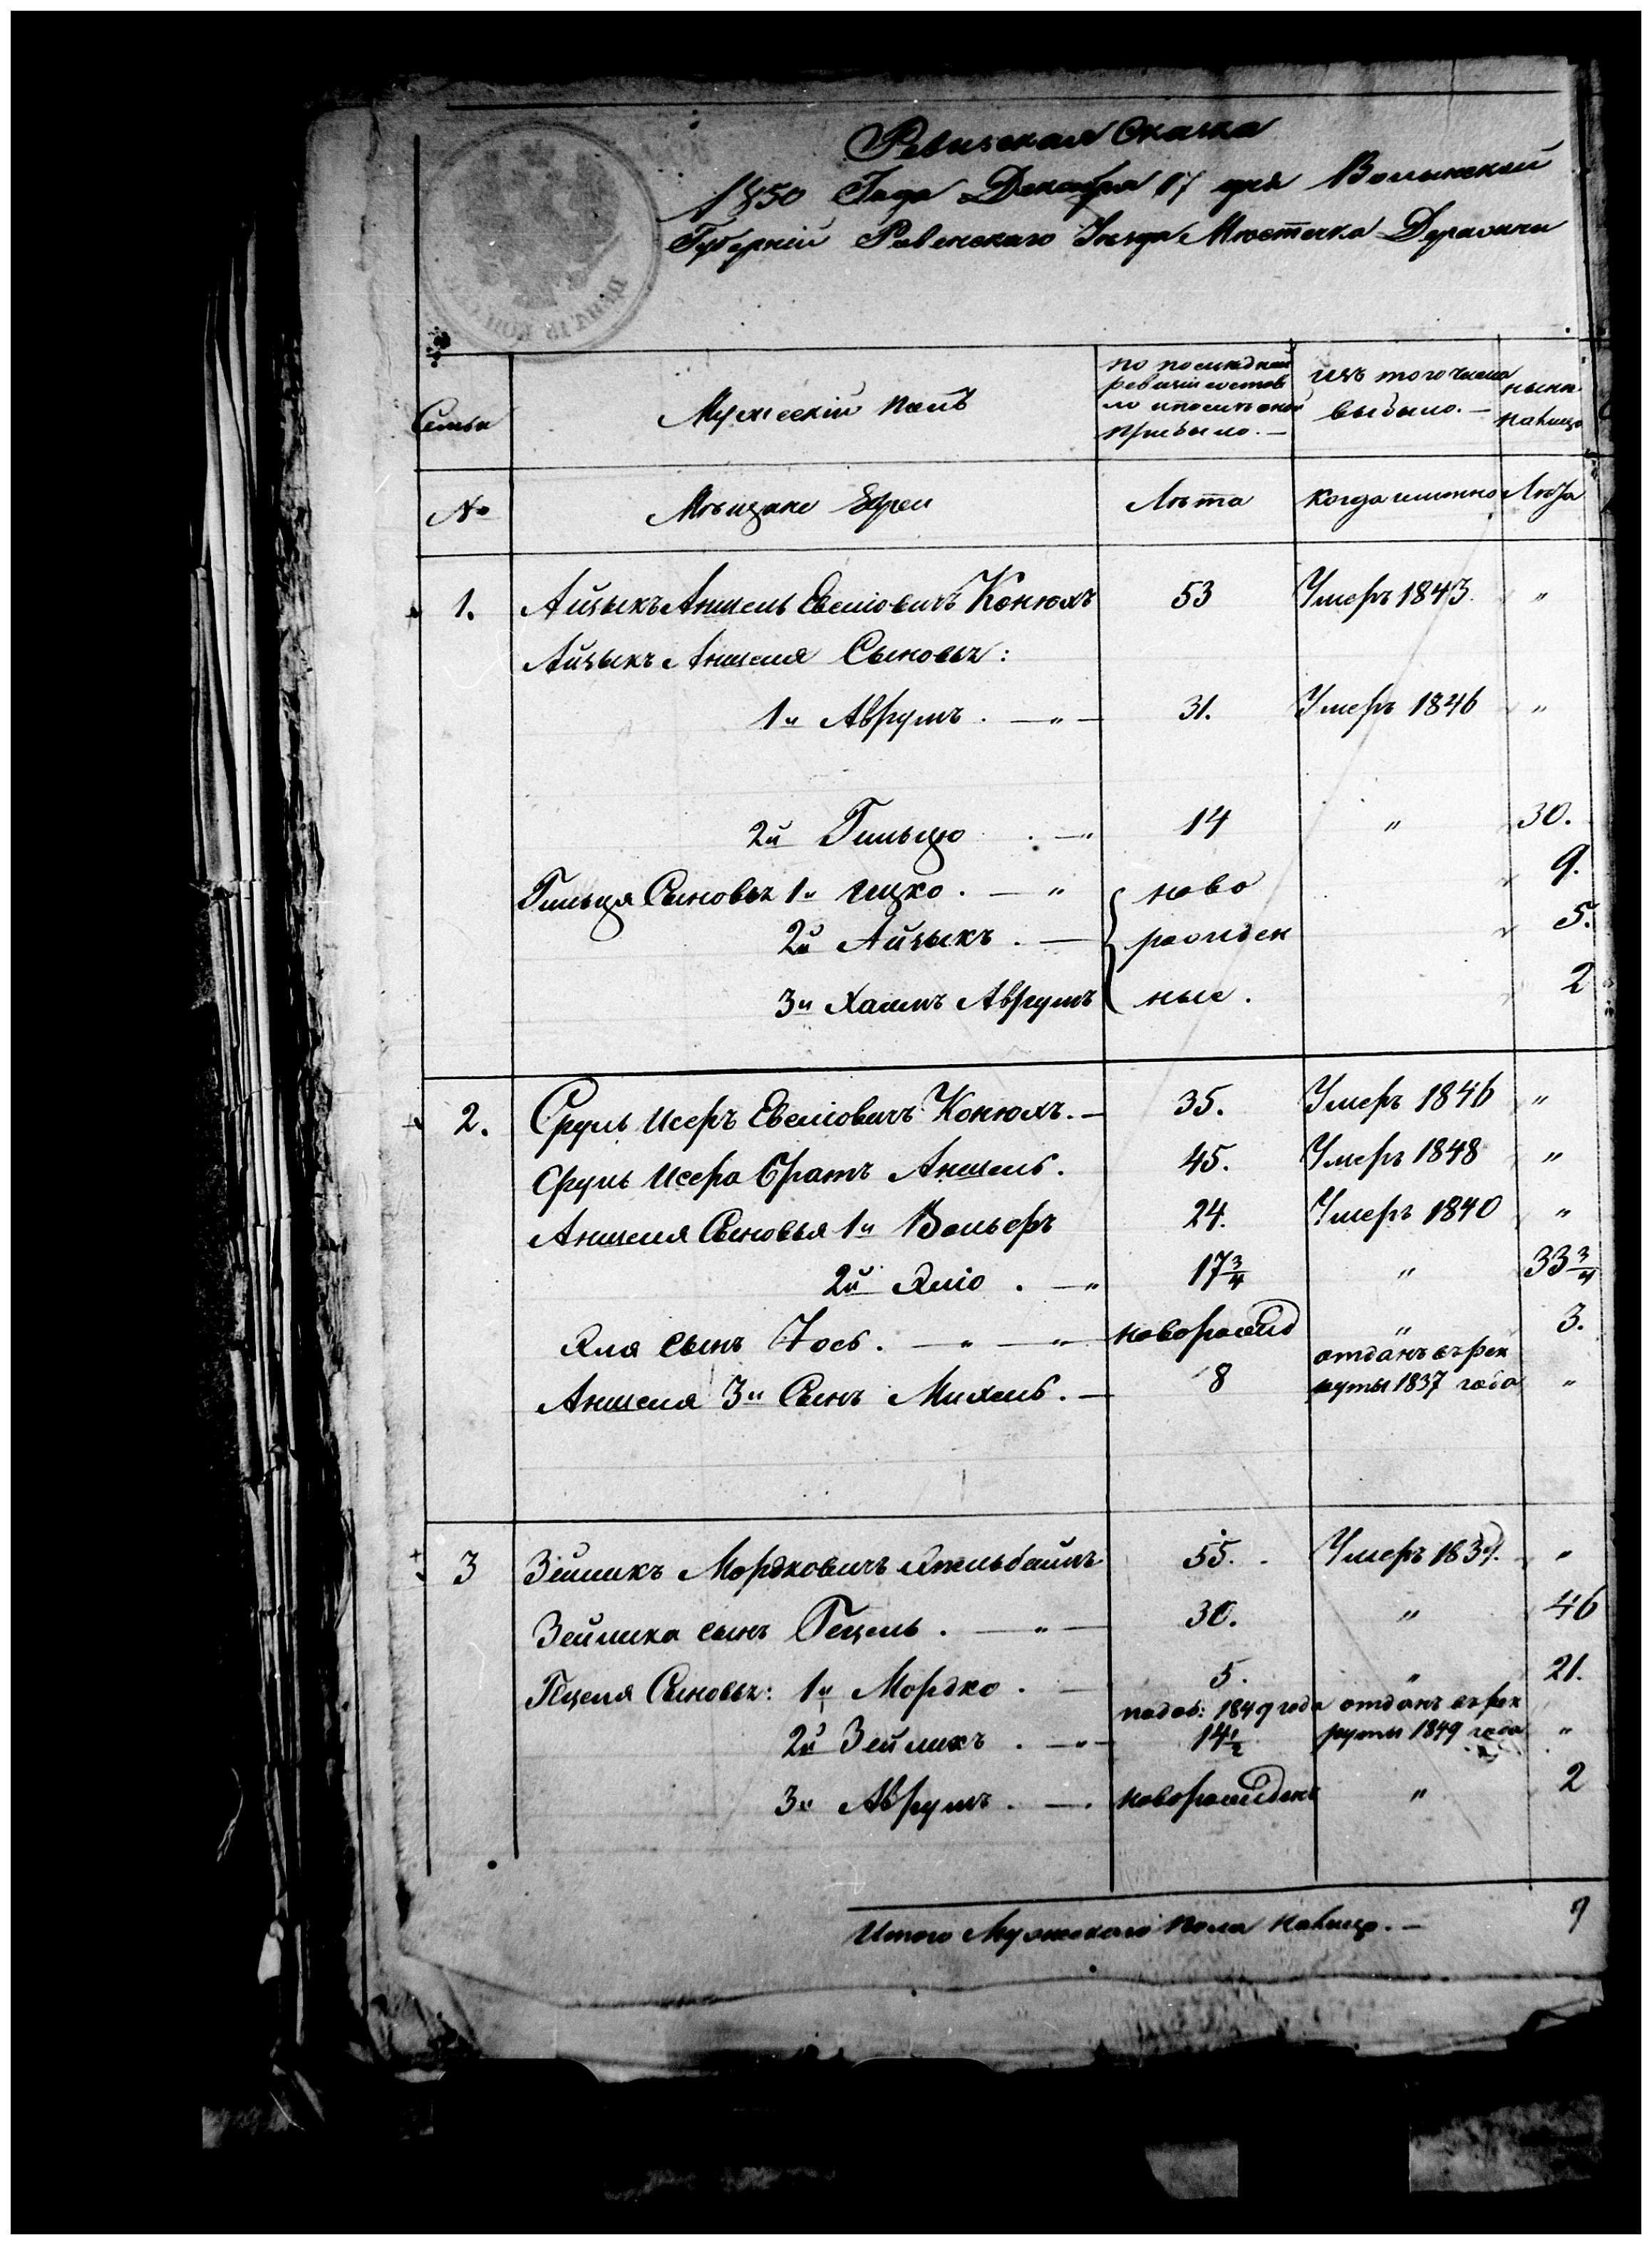 Ревизская Сказка
1850 Года Декабря 17 дня Волынской
Губерніи Ровенскаго Уезда Местечка Деражни
Семьи
Мужескій полъ
по последней
ревизіи состоя
ло и после оной
прибыло. —
изъ того числа
выбыло. —
ныне
налицо
№
Мещане Евреи
Лета
когда именно
Лета
1. Айзыкъ Аншель Евеліовичъ Конюхъ 53 Умеръ 1843. "
Айзыкъ Аншеля Сыновья:
1й Аврумъ . — " — 31. Умеръ 1846 "
2й Гильцо . — " 14 " 30.
Гильця Сыновья 1й Ицко . — " ново " 9.
2й Айзыкъ . — рожден " 5.
3й Хаимъ Аврумъ ные . " 2
2. Сруль Исеръ Евелiовичъ Конюхъ. — 35. Умеръ 1846 "
Сруль Исера Братъ Аншель. 45. Умеръ 1848 "
Аншеля Сыновья 1й Вольфъ 24. Умеръ 1840 "
2й Яліо . — " 17 3/4 " 33 3/4
Яля сынъ Іось . — " — " — новорожд " 3.
Аншеля 3й Сынъ Михель. — 8 отданъ въ рек
руты 1837 года "
3 Зейликъ Мордковичъ 55. Умеръ 1839. "
Зейлика сынъ Гецель . — " — 30. " 46
Гецеля Сыновья: 1й Мордко . — 5. " 21.
2й Зейликъ . — " — 1849 года
14 1/2 отданъ въ рек
руты 1849 года "
3й Аврумъ . — . новорожденъ " 2
Итого Мужескаго пола налицо. — 9